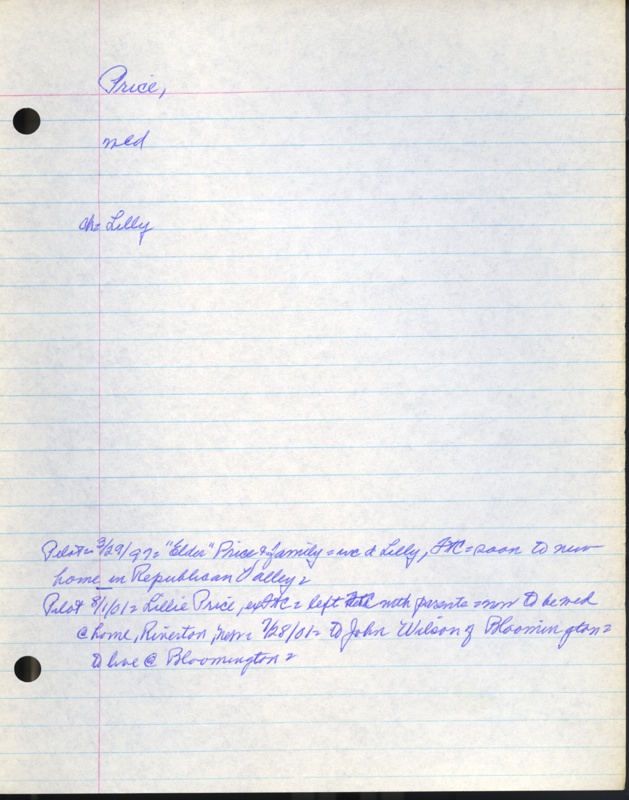 Price,
med
ch= Lilly
Pilot= 3/29/97= "Elder" Price & family = inc d Lilly, FtC = soon to new
home in Republican Valley=
Pilot 8/1/01= Lillie Price, ex FtC = left with parents = now to be wed
@ home, Riverton, 7/28/01= to John Wilson of Bloomington=
to live @ Bloomington=